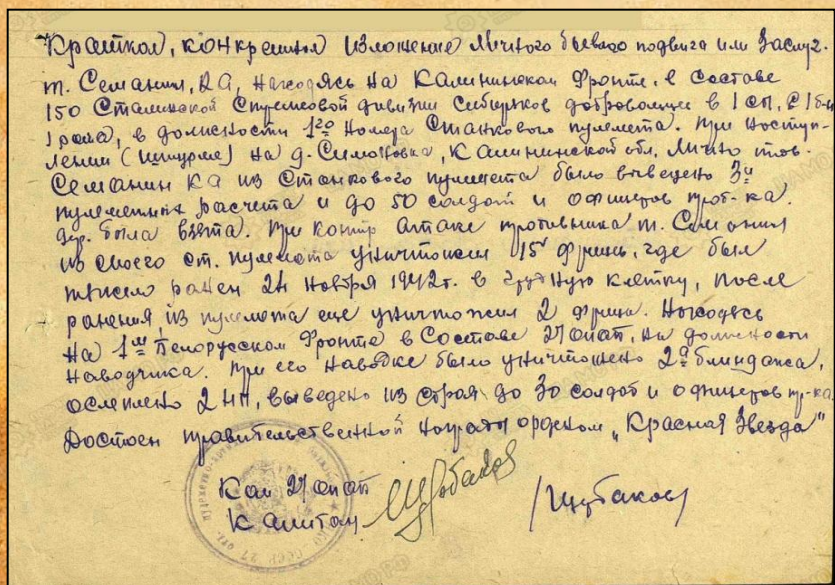 Краткое, конкретное изложение личного боевого подвига или заслуг.
т. Семанин, КА, находясь на Калининском Фронте, в составе
150 Сталинской Стрелковой дивизии Сибиряков добровольцев в 1 СП,
1 рота, в должности 1го номера Станкового пулемета. При поступ-
лении (штурме) на д. Симоновка, Калининской обл. лично тов.
Семанин КА из Станкового пулемета было выведено 3и
пулеметных расчета и до 50 солдат и офицеров прот-ка.
дер. была взята. При контр атаке противника т. Семанин
из своего ст. пулемета уничтожил 15 фриц, где был
тяжело ранен 24 ноября 1942г. в грудную клетку, после
ранения, из пулемета еще уничтожил 2 фрица. Находясь
на 1ом Белорусском Фронте в Составе 27 опат, на должности
наводчика. При его наводке было уничтожено 2а блиндажа,
ослеплено 2 НП, выведено из строя до 30 солдат и офицеров пр-ка.
Достоен правительственной награды орденом „Красная Звезда"
Ком 27 опат
Капитан /Щубаков/